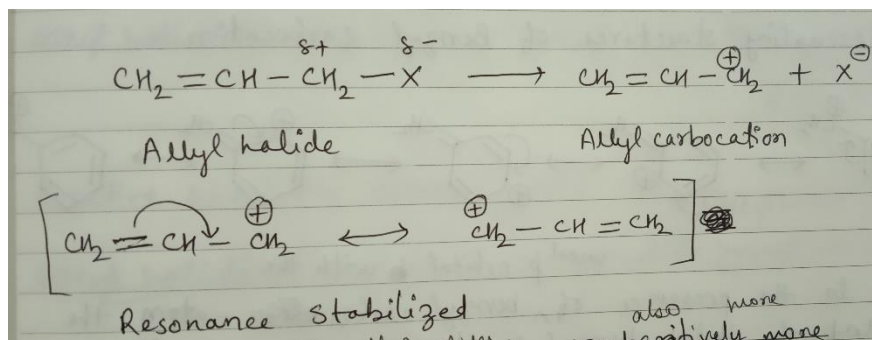 δ+ δ-
CH₂ = CH - CH₂ - X ⟶ CH₂ = CH - CH₂⊕ + X⊖
Allyl halide Allyl carbocation
[CH₂ = CH - CH₂⊕ ⟷ ⊕CH₂ - CH = CH₂]
Resonance stabilized
also more
more